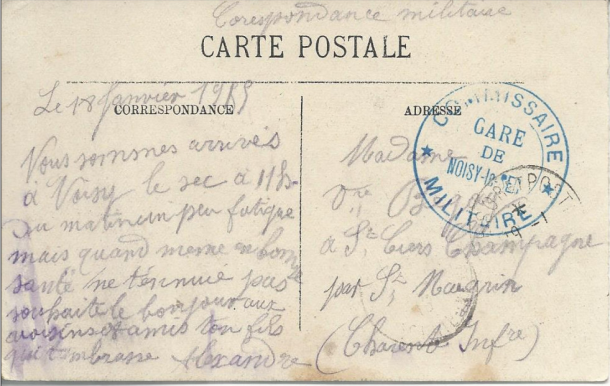 Corespondance militaire
CARTE POSTALE
Le 18 Janvier 1915
CORRESPONDANCE
Nous sommes arrivés
à Noisy le sec a 11h
du matin un peu fatigue
mais quand meme en bonne
santé ne tennuie pas
souhaite le bonjour aux
voisins et amis ton fils
qui tembrasse Alexandre
ADRESSE
Madame
Vve
à St Ciers Champagne
par St Maigrin
(Charente Infre)
COMMISSAIRE
GARE
DE
NOISY-le-SEC
MILITAIRE